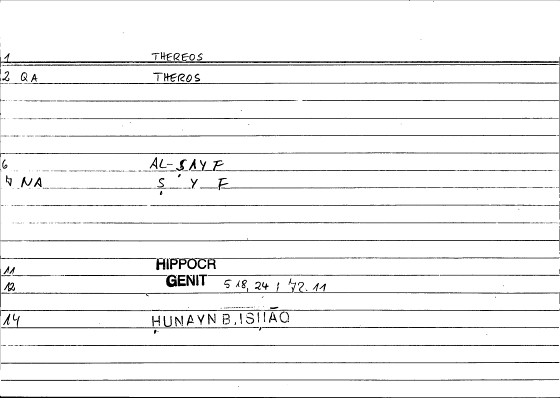 1 THEREOS
2 QA THEROS
6 AL-ṢAYF
7 NA Ṣ Y F
11 HIPPOCR
12 GENIT 518, 24 / 72. 11
14 ḤUNAYN B. ISḤĀQ